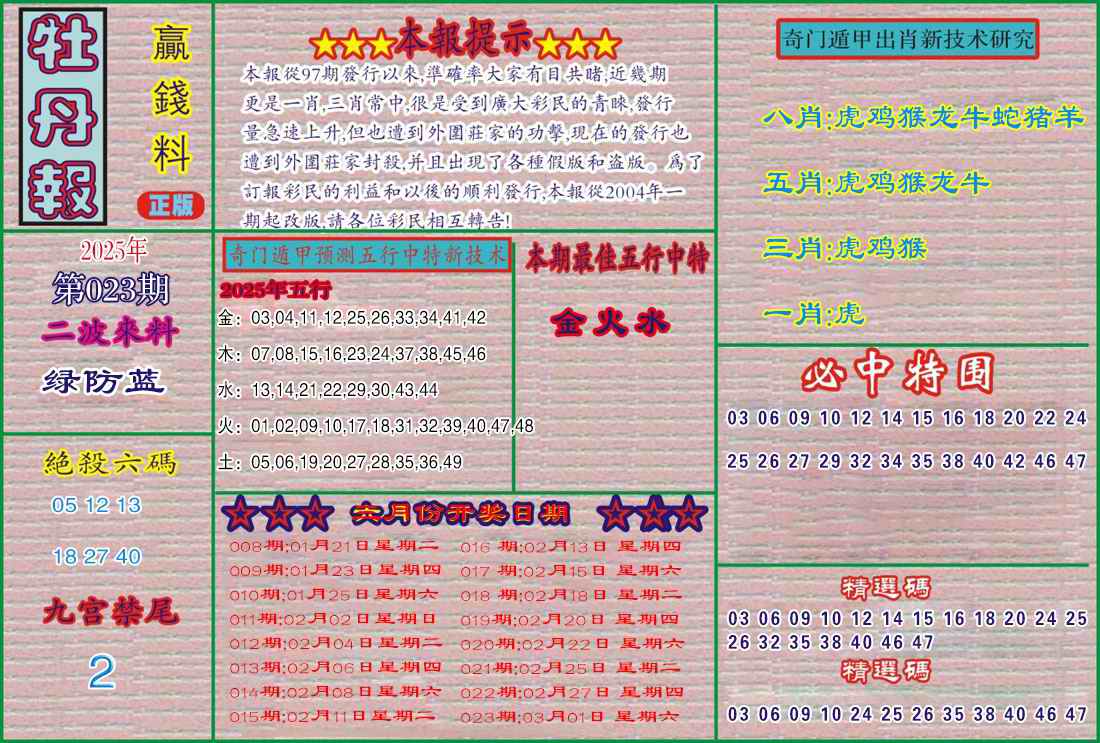 牡丹報
贏錢料
正版
★★★本報提示★★★
本報從97期發行以來,準確率大家有目共睹,近幾期
更是一肖,三肖常中,很是受到廣大彩民的青睞,發行
量急速上升,但也遭到外圍莊家的功擊,現在的發行也
遭到外圍莊家封殺,并且出現了各種假版和盗版。爲了
訂報彩民的利益和以後的順利發行,本報從2004年一
期起改版,請各位彩民相互轉告!
奇门遁甲出肖新技术研究
八肖:虎鸡猴龙牛蛇猪羊
五肖:虎鸡猴龙牛
三肖:虎鸡猴
一肖:虎
2025年
第023期
二波來料
绿防蓝
奇门遁甲预测五行中特新技术
2025年五行
金：03,04,11,12,25,26,33,34,41,42
木：07,08,15,16,23,24,37,38,45,46
水：13,14,21,22,29,30,43,44
火：01,02,09,10,17,18,31,32,39,40,47,48
土：05,06,19,20,27,28,35,36,49
本期最佳五行中特
金火水
必中特围
03 06 09 10 12 14 15 16 18 20 22 24
25 26 27 29 32 34 35 38 40 42 46 47
絕殺六碼
05 12 13
18 27 40
九宫禁尾
2
☆☆☆ 六月份开奖日期 ☆☆☆
008期:01月21日星期二 016 期:02月13日 星期四
009期:01月23日星期四 017 期:02月15日 星期六
010期:01月25日星期六 018 期:02月18日 星期二
011期:02月02日星期日 019期:02月20日 星期四
012期:02月04日星期二 020期:02月22日 星期六
013期:02月06日星期四 021期:02月25日 星期二
014期:02月08日星期六 022期:02月27日 星期四
015期:02月11日星期二 023期:03月01日 星期六
精選碼
03 06 09 10 12 14 15 16 18 20 24 25
26 32 35 38 40 46 47
精選碼
03 06 09 10 24 25 26 35 38 40 46 47